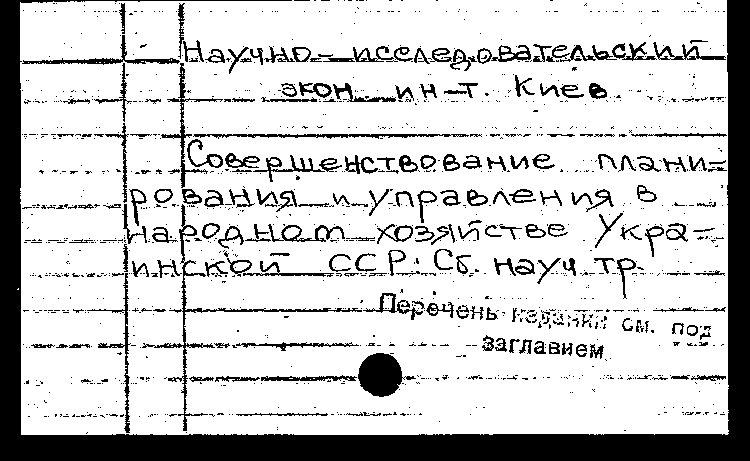 Научно-исследовательский
экон. ин-т. Киев.
Совершенствование плани-
рования и управления в
народном хозяйстве Укра-
инской ССР: Сб. науч. тр.
Перечень изданий см. под
заглавием